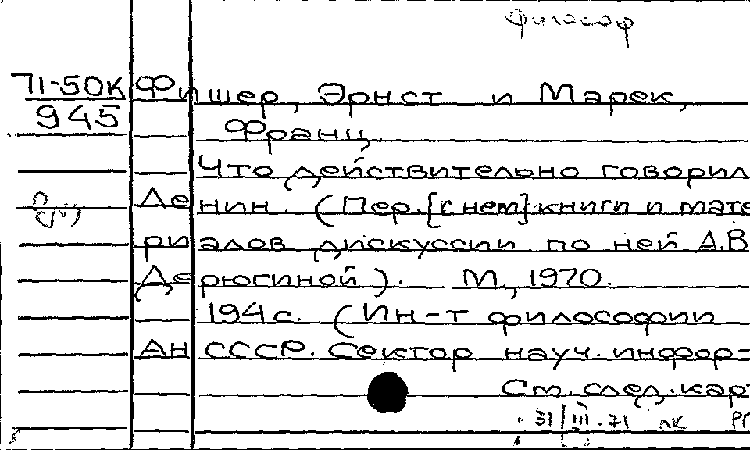 философ
71-50К Фишер, Эрнст и Марек,
945 Франц.
Что действительно говорил
Ленин. (Пер. [с нем] книги и мате
риалов дискуссии по ней А.В.
Дерюгиной). М., 1970.
194 с. (Ин-т философии
АН СССР. Сектор науч. информ=
См. след. кар
31/III-71 лк